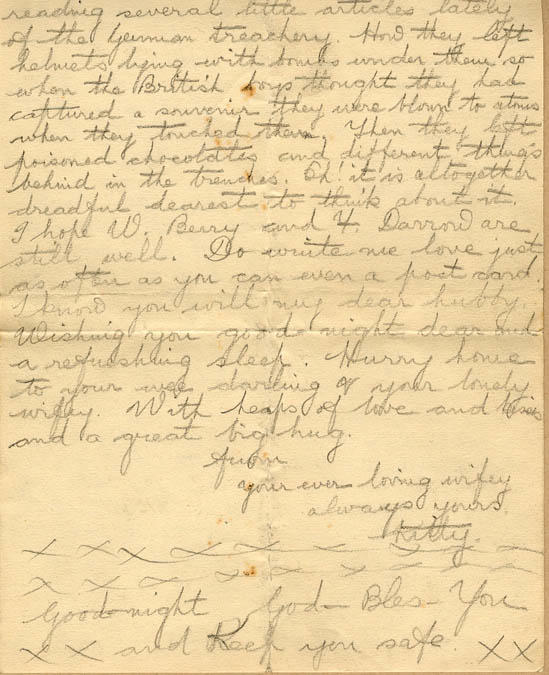 reading several little articles lately
of the German treachery. How they left
helmets lying with bombs under them so
when the British boys thought they had
captured a souvenir they were blown to atoms
when they touched them. Then they left
poisoned chocolates and different things
behind in the trenches. Oh! it is altogether
dreadful dearest to think about it.
I hope W. Berry and H. Darrow are
still well. Do write me love just
as often as you can even a post card.
I know you will my dear hubby.
Wishing you good-night dear and
a refreshing sleep. Hurry home
to your wee darling & your lonely
wifey. With heaps of love and kisses
and a great big hug.
From
your ever loving wifey
always yours.
Kitty.
x x x x x x x x x
x x x x x x x x
Good-night God-Bless-You
x x and Keep you safe. x x